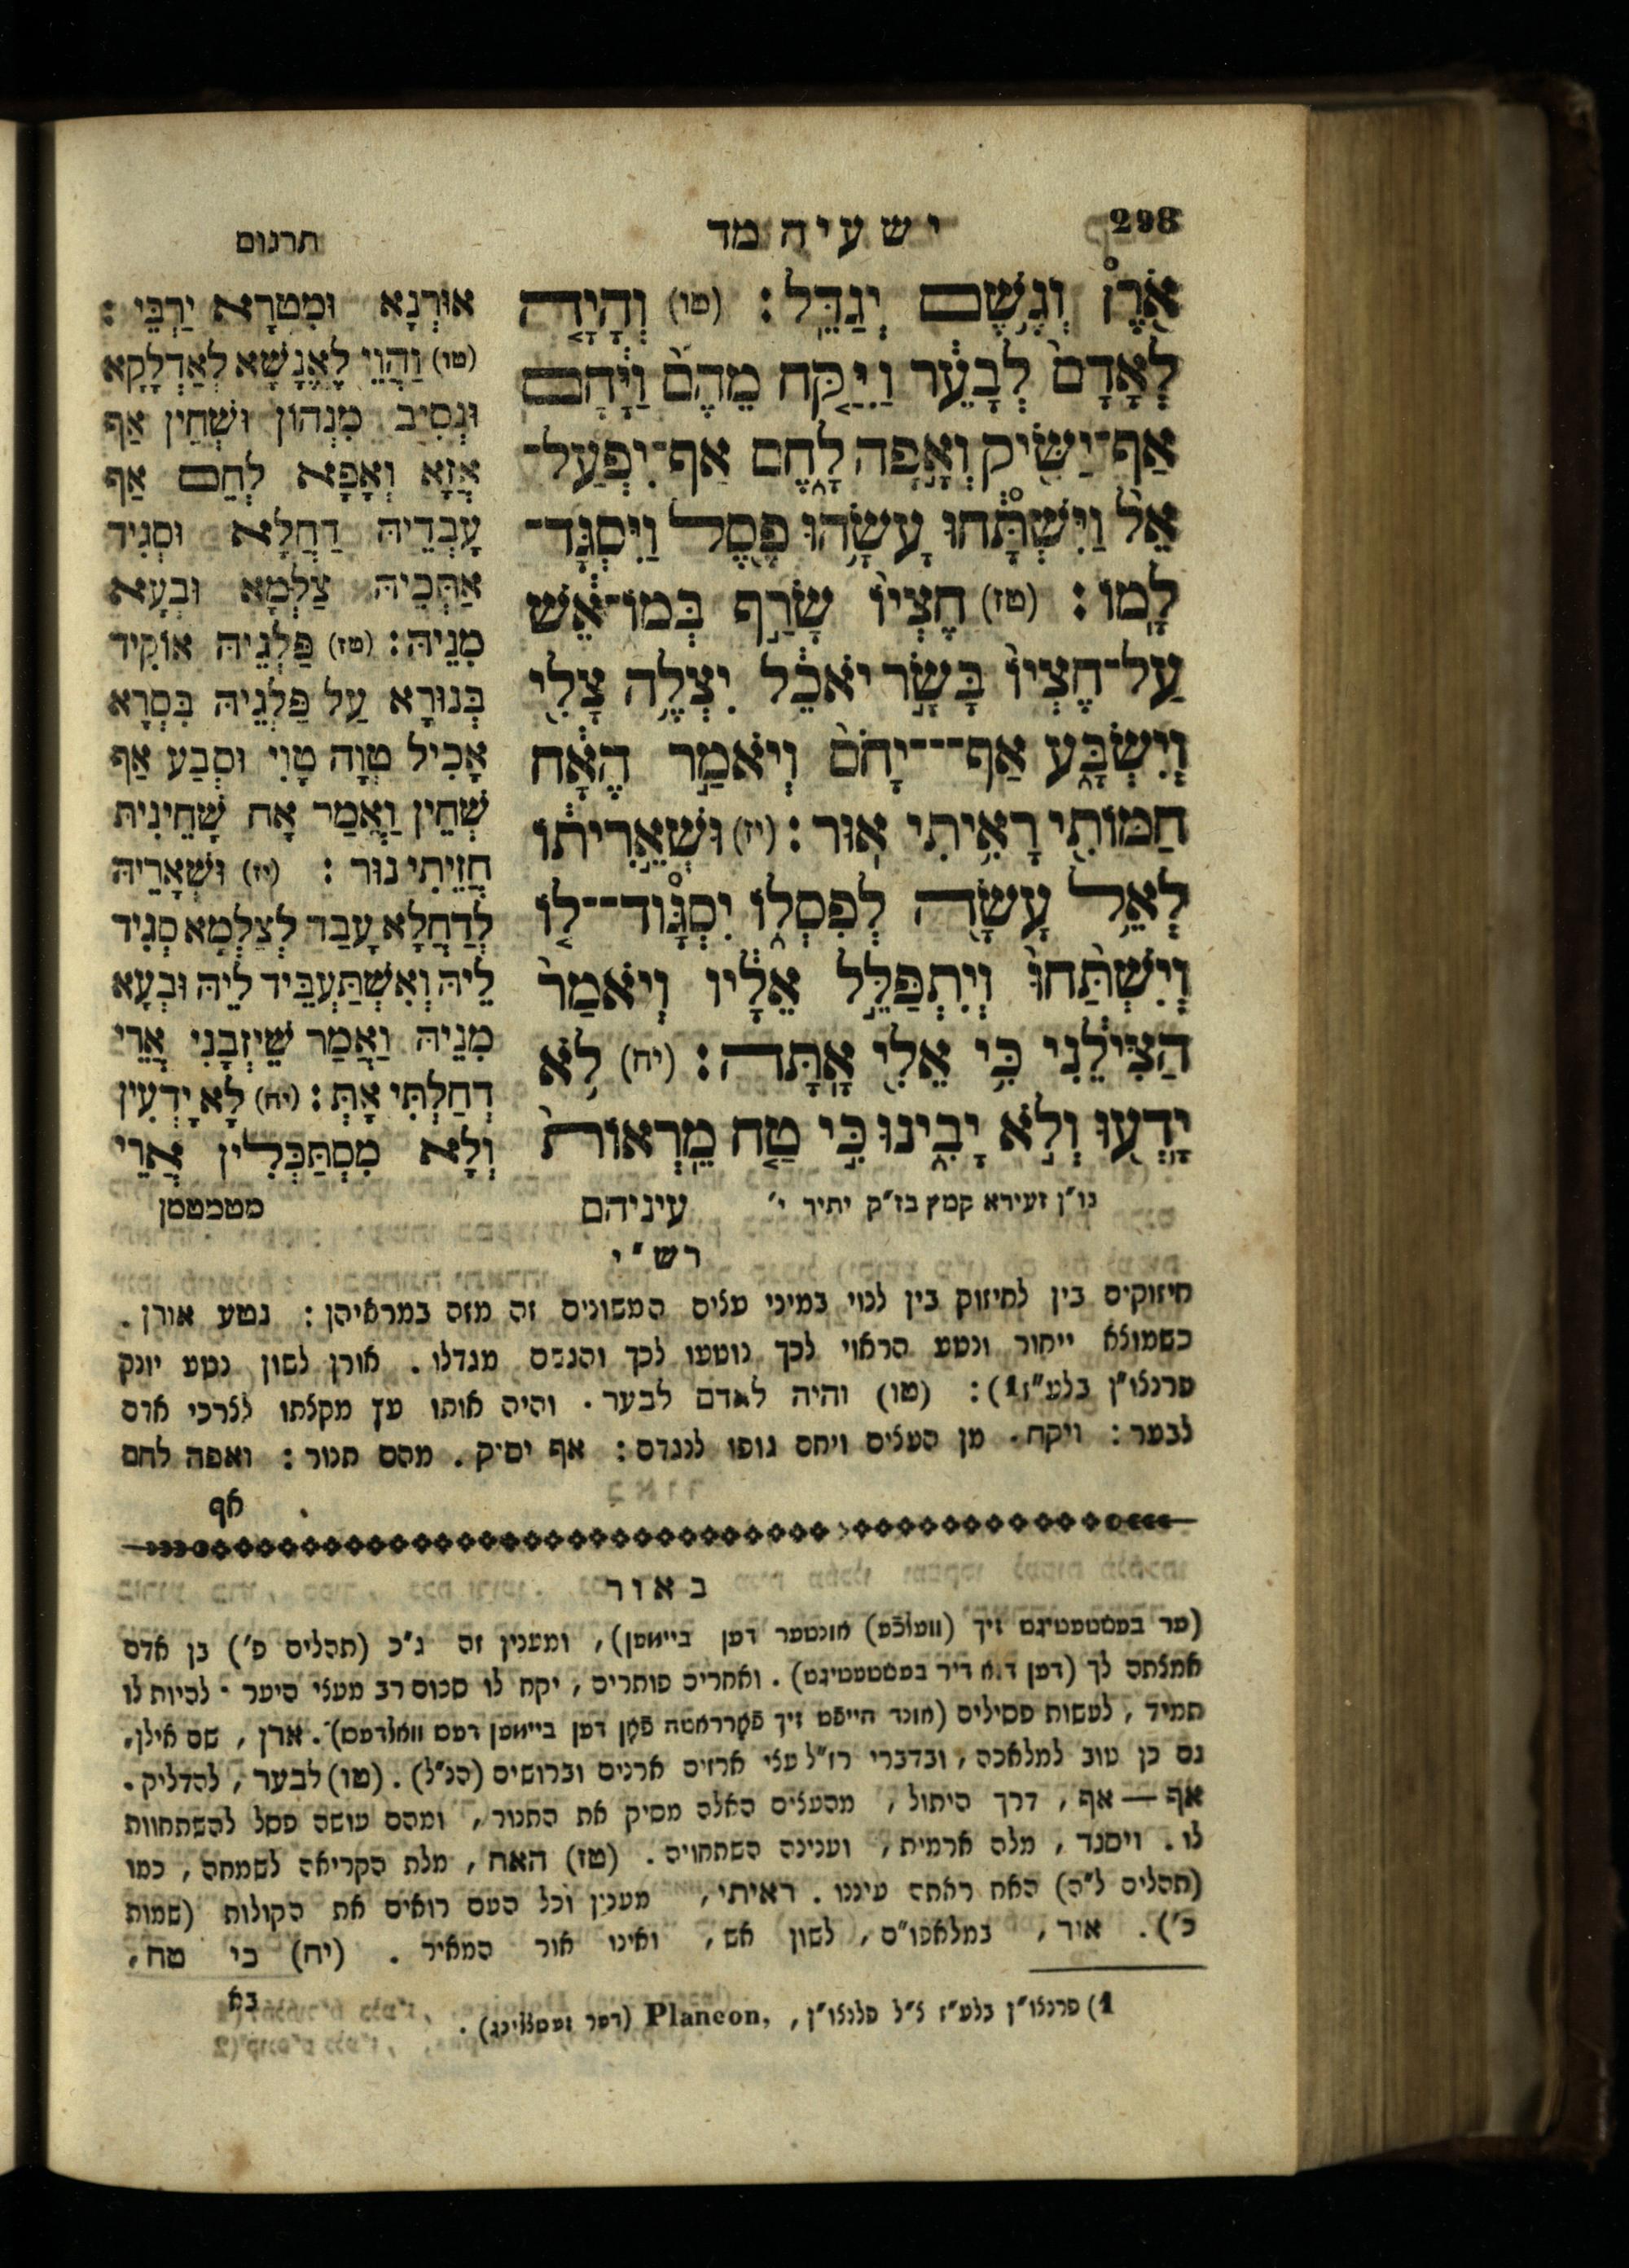 298
ישעיה מד
תרגום
אֹ֖רֶן וְגֶ֥שֶׁם יְגַדֵּֽל׃ (טו) וְהָיָ֤ה
לְאָדָם֙ לְבָעֵ֔ר וַיִּקַּ֤ח מֵהֶם֙ וַיָּ֔חָם
אַף־יַשִּׂ֖יק וְאָ֣פָה לָ֑חֶם אַף־יִפְעַל־
אֵל֙ וַיִּשְׁתָּ֔חוּ עָשָׂ֥הוּ פֶ֖סֶל וַיִּסְגָּד־
לָֽמוֹ׃ (טז) חֶצְיוֹ֙ שָׂרַ֣ף בְּמוֹ־אֵ֔שׁ
עַל־חֶצְיוֹ֙ בָּשָׂ֣ר יֹאכֵ֔ל יִצְלֶ֥ה צָלִ֖י
וְיִשְׂבָּ֑ע אַף־־־יָחֹם֙ וְיֹאמַ֣ר הֶאָ֔ח
חַמּוֹתִ֖י רָאִ֥יתִי אֽוּר׃ (יז) וּשְׁאֵ֣רִית֔וֹ
לְאֵ֥ל עָשָׂ֖ה לְפִסְל֑וֹ יִסְגָּוד־־ל֤וֹ
וְיִשְׁתַּ֙חוּ֙ וְיִתְפַּלֵּ֣ל אֵלָ֔יו וְיֹאמַר֙
הַצִּילֵ֔נִי כִּ֥י אֵלִ֖י אָֽתָּה׃ (יח) לֹ֥א
יָדְע֖וּ וְלֹ֣א יָבִ֑ינוּ כִּ֣י טַ֤ח מֵֽרְאוֹת֙
נו״ן זעירא קמץ בז״ק יתיר י׳
עיניהם
אוּרְנָא וּמִטְרָא יַרְבֵּי׃
(טו) וַהֲוֵי לֶאֱנָשָׁא לְאַדְלָקָא
וּנְסִיב מִנְהוֹן וּשְׁחֵין אַף
אֲזָא וְאָפָא לְחֵם אַף
עָבְדֵיהּ דַחֲלָא וּסְגִיד
אַתְּכֵיהּ צַלְמָא וּבְעָא
מִנֵיהּ׃ (טז) פַּלְגֵיהּ אוֹקִיד
בְּנוּרָא עַל פַּלְגֵיהּ בִּסְרָא
אָכִיל טְוָה טָוִי וּסְבַע אַף
שְׁחֵין וַאֲמַר אָח שָׁחֵינִית
חֲזֵיתִי נוּר׃ (יז) וּשְׁאָרֵיהּ
לְדַחֲלָא עָבַד לְצַלְמָא סְגִיד
לֵיהּ וְאִשְׁתַּעְבֵּיד לֵיהּ וּבְעָא
מִנֵיהּ וַאֲמַר שֵׁיזְבָנִי אֲרֵי
דְחַלְתִּי אָתְּ׃ (יח) לָא יָדְעִין
וְלָא מִסְתַּכְּלִין אֲרֵי
מטמטמן
רש״י
חיזוקים בין לחיזוק בין לנוי במיני עצים המשונים זה מזה במראיהן: נטע אורן.
כשמוצא ייחור ונטע הראוי לכך נוטעו לכך והגשם מגדלו. אורן לשון נטע יונק
פרנצו״ן בלע״ז1): (טו) והיה לאדם לבער. והיה אותו עץ מקצתו לצרכי אדם
לבער: ויקח. מן העצים ויחם גופו לנגדם: אף ישיק. מהם תנור: ואפה לחם
אף
באור
(ער בפֿעסטיגט זיך (וועלכֿע) אונטער דען ביימען), ומענין זה ג״כ (תהלים פ׳) בן אדם
אמצתה לך (דען דוא דיר בפֿעסטיגט). ואחרים פותרים, יקח לו סכום רב מעצי היער להיות לו
תמיד, לעשות פסילים (אונד הייפֿט זיך פֿאָרראטה פֿאָן דען ביימען דעס וואלדעס). ארן, שם אילן,
גם כן טוב למלאכה, ובדברי רז״ל עצי ארזים ארנים וברושים (הנ״ל). (טו) לבער, להדליק.
אף — אף, דרך היתול, מהעצים האלה מסיק את התנור, ומהם עושה פסל להשתחוות
לו. ויסגד, מלה ארמית, וענינה השתחויה. (טז) האח, מלת הקריאה לשמחה, כמו
(תהלים ל״ה) האח ראתה עיננו. ראיתי, מענין וכל העם רואים את הקולות (שמות
כ׳). אור, במלאפו״ם, לשון אש, ואינו אור המאיר. (יח) כי טח,
בא
1) פרנצו״ן בלע״ז צ״ל פלנצו״ן, Plancon, (דער זעטצלינג).